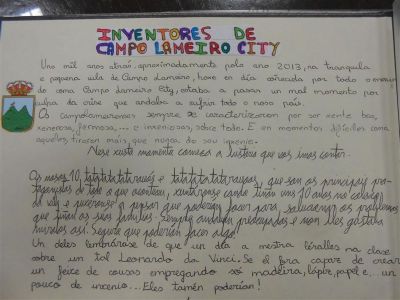 INVENTORES DE
CAMPO LAMEIRO CITY
Uns mil anos atrás, aproximadamente polo ano 2013, na tranquila
e pequena aula de Campo Lameiro, hoxe en día coñecida por todo o mundo
do como Campo Lameiro City, estaba a pasar un mal momento por
culpa da crise que andaba a sufrir todo o noso país.
Os campolameirenses sempre se caracterizaron por ser xente boa,
xenerosa, fermosa,... e inxeniosa, sobre todo. E en momentos difíciles coma
aqueles, tiraron máis que nunca do seu inxenio.
Nese xusto momento comeza a historia que vos imos contar.
Os nosos 10, que son os principais pro-
tagonistas de todo o que aconteceu, xuntáronse cando tiñan uns 10 anos no colexio
da vila e puxéronse a pensar que poderían facer para solucionar os problemas
que tiñan as súas familias. Sempre andaban preocupados e non lles gustaba
miralos así. Seguro que poderían facer algo!
Un deles lembrárase de que un día a mestra lérálles na clase
sobre un tal Leonardo da Vinci. Se el fora capaz de crear
un feixe de cousas empregando só madeira, lápis, papel e... un
pouco de inxenio... Eles tamén poderían!